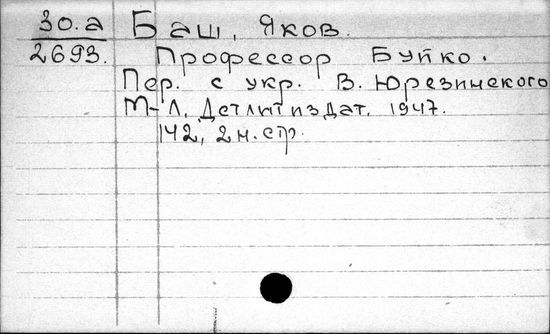 30.а Баш, Яков.
2693. Профессор Буйко.
Пер. с укр. В. Юрезинского
М-Л, Детлитиздат, 1947.
142, 2 н. стр.